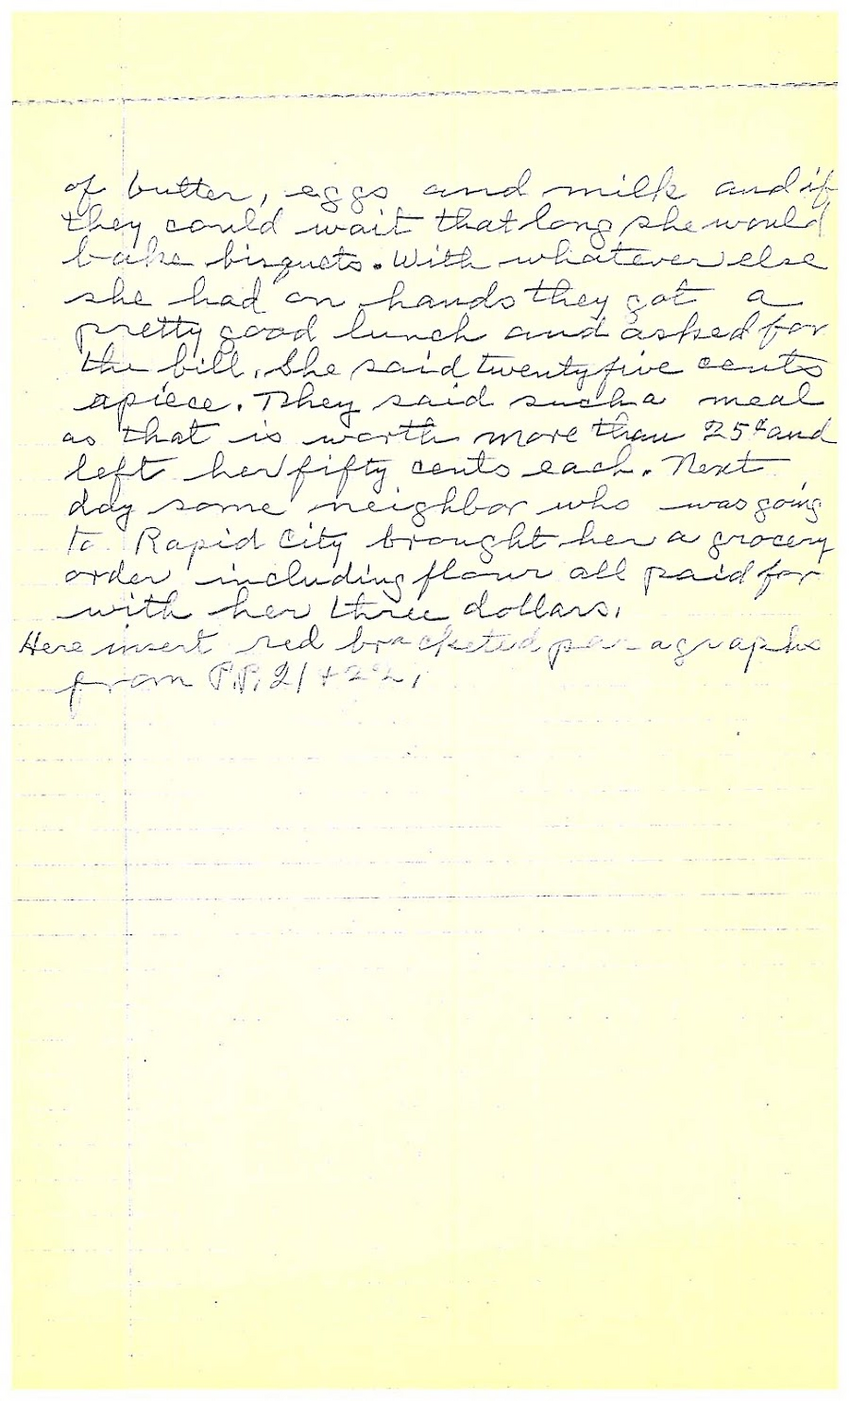 of butter, eggs and milk and if
they could wait that long she would
bake bisquets. With whatever else
she had on hands they got a
pretty good lunch and asked for
the bill. She said twentyfive cents
apiece. They said such a meal
as that is worth more than 25¢ and
left her fifty cents each. Next
day some neighbor who was going
to Rapid City brought her a grocery
order including flour all paid for
with her three dollars.
Here insert red bracketed paragraphs
from P.P. 21 + 22.